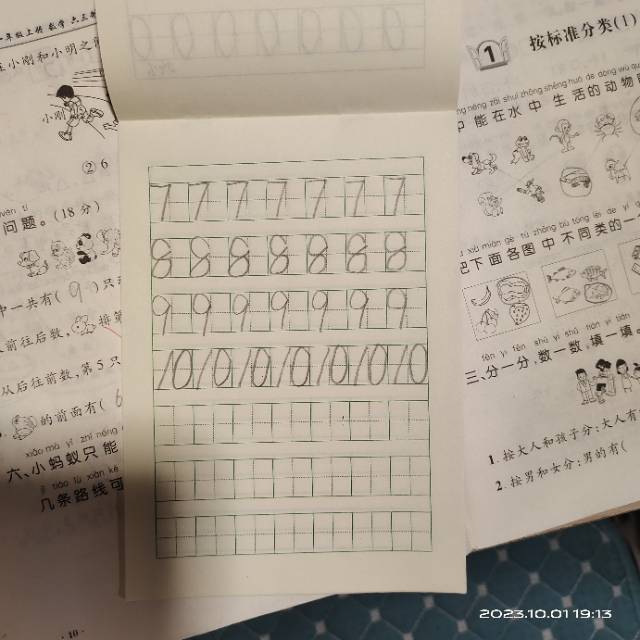 0 0 0 0 0 0 0
7 7 7 7 7 7 7
8 8 8 8 8 8 8
9 9 9 9 9 9 9
10 10 10 10 10 10 10
小刚和小明之
小刚
②6
问题。(18分)
中一共有(9)只
从后往前数,第5只
的前面有(6
xiǎo mǎ yǐ zhǐ néng
六、小蚂蚁只能
jǐ tiáo lù xiàn kě
几条路线可
1 按标准分类(1)
néng zài shuǐ zhōng shēng huó de dòng wù
能在水中生活的动物
bǎ xià miàn gè tú zhōng bù tóng lèi de yí
把下面各图中不同类的一
fēn yì fēn shǔ yì shǔ tián yì tián
三、分一分,数一数,填一填。
1. 按大人和孩子分:大人有
2. 按男和女分:男的有(
2023.10.01 19:13